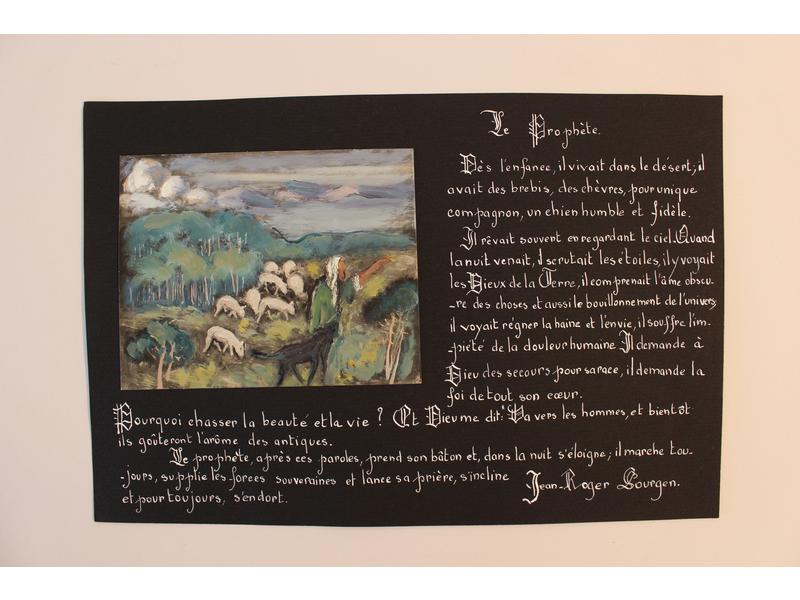 Le Prophète.
Dès l'enfance, il vivait dans le désert; il
avait des brebis, des chèvres, pour unique
compagnon, un chien humble et fidèle.
Il rêvait souvent en regardant le ciel. Quand
la nuit venait, il scrutait les étoiles, il y voyait
les Dieux de la Terre, il comprenait l'âme obscu-
-re des choses et aussi le bouillonnement de l'univers;
il voyait régner la haine et l'envie, il souffre l'im-
-piété de la douleur humaine. Il demande à
Dieu des secours pour sa race, il demande la
foi de tout son cœur.
Pourquoi chasser la beauté et la vie ? Et Dieu me dit: Va vers les hommes, et bientôt
ils goûteront l'arôme des antiques.
Le prophète, après ces paroles, prend son bâton et, dans la nuit s'éloigne; il marche tou-
-jours, supplie les forces souveraines et lance sa prière, s'incline
et pour toujours, s'endort.
Jean-Roger Sourgen.